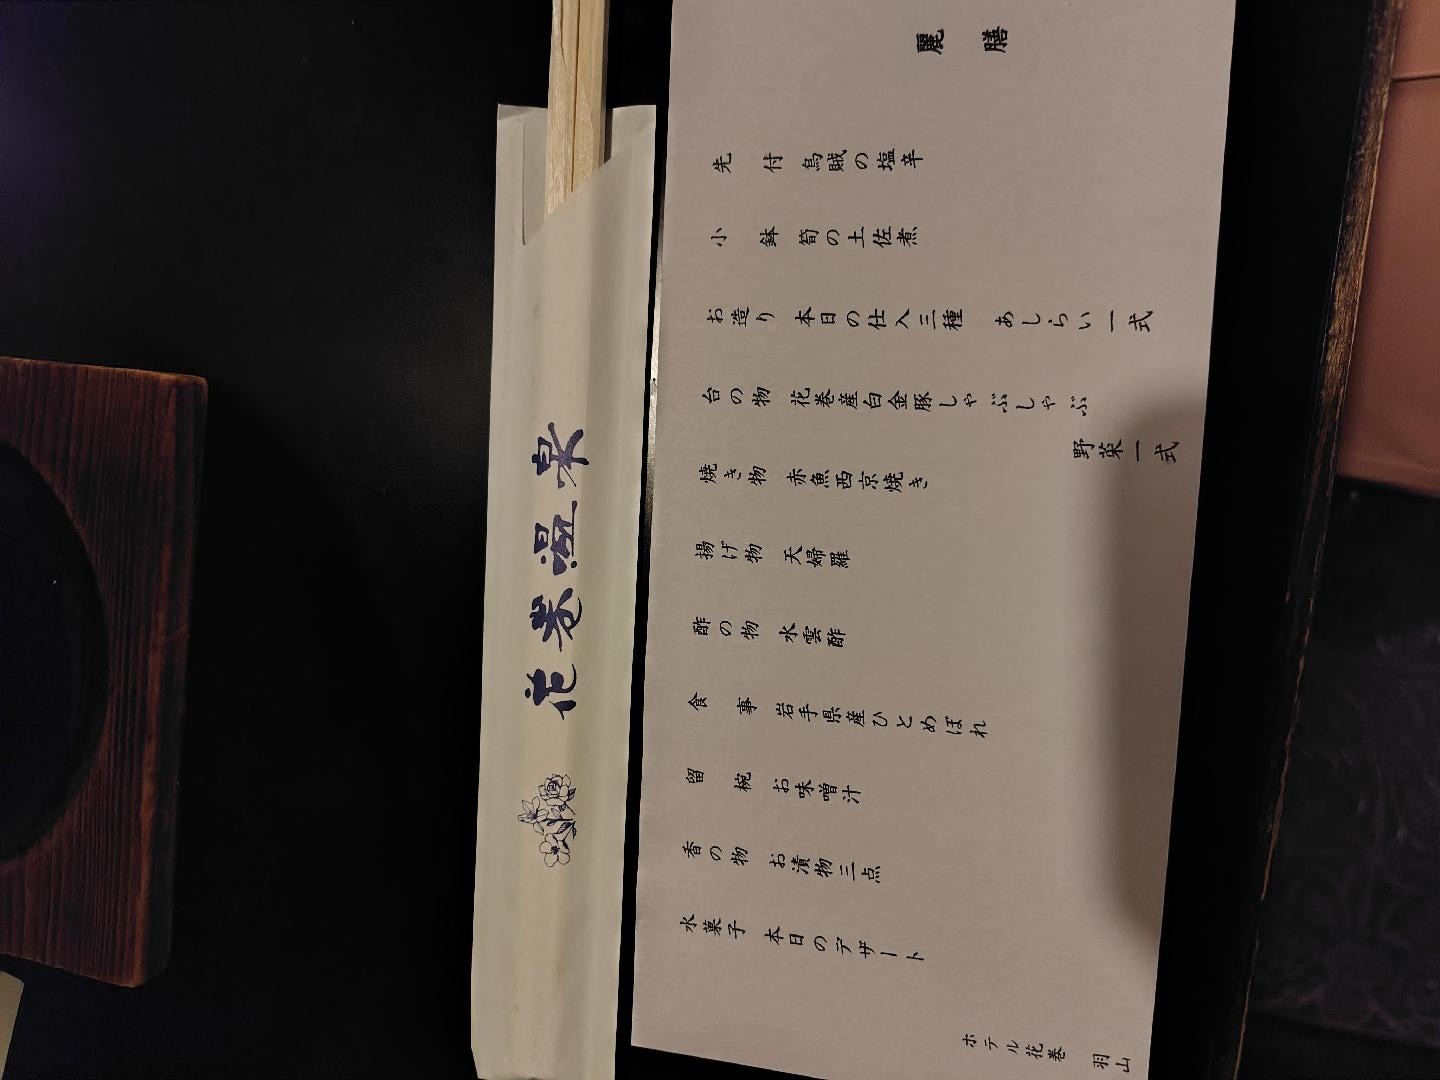 麗膳
先付 烏賊の塩辛
小鉢 筍の土佐煮
お造り 本日の仕入三種 あしらい一式
台の物 花巻産白金豚しゃぶしゃぶ
野菜一式
焼き物 赤魚西京焼き
揚げ物 天婦羅
酢の物 水雲酢
食事 岩手県産ひとめぼれ
留椀 お味噌汁
香の物 お漬物三点
水菓子 本日のデザート
ホテル花巻
羽山
花巻温泉